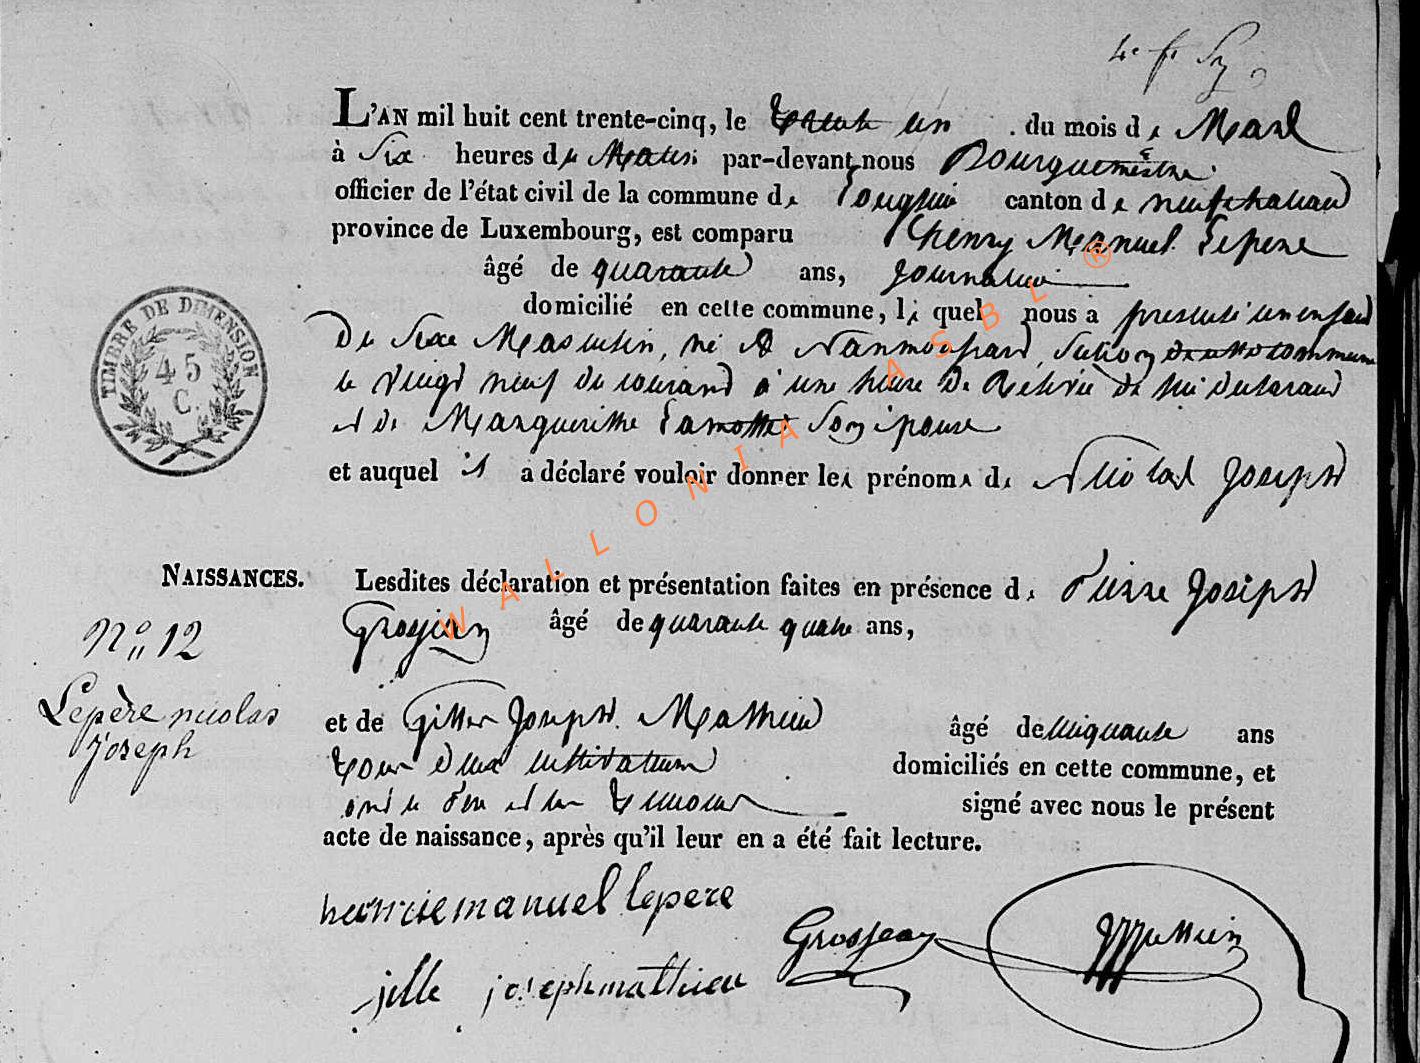 L'AN mil huit cent trente-cinq, le trente un du mois de Mars
à Six heures du Matin par-devant nous Bourguemestre
officier de l'état civil de la commune de canton de neufchateau
province de Luxembourg, est comparu henry Manuel Lepere
âgé de quarante ans, Journalier
domicilié en cette commune, le quel nous a presenté un enfant
De Sexe Masculin, né a Namoussart, Section de cette commune
le vingt neuf du courant a une heure De Relevée de lui declarant
et de Marguerithe Lamotte Son epouse
et auquel il a déclaré vouloir donner les prénoms de Nicolas Joseph
NAISSANCES.
Lesdites déclaration et présentation faites en présence de Pierre Joseph
Grosjean âgé de quarante quatre ans,
N° 12
Lepère nicolas
joseph
et de Gille Joseph Mathieu âgé de cinquante ans
tous deux cultivateurs domiciliés en cette commune, et
ont le Pere et les temoins signé avec nous le présent
acte de naissance, après qu'il leur en a été fait lecture.
henrie manuel lepere
Grosjean
jille joseph mathieu
TIMBRE DE DIMENSION
45
C.
WALLONIA ASBL ®